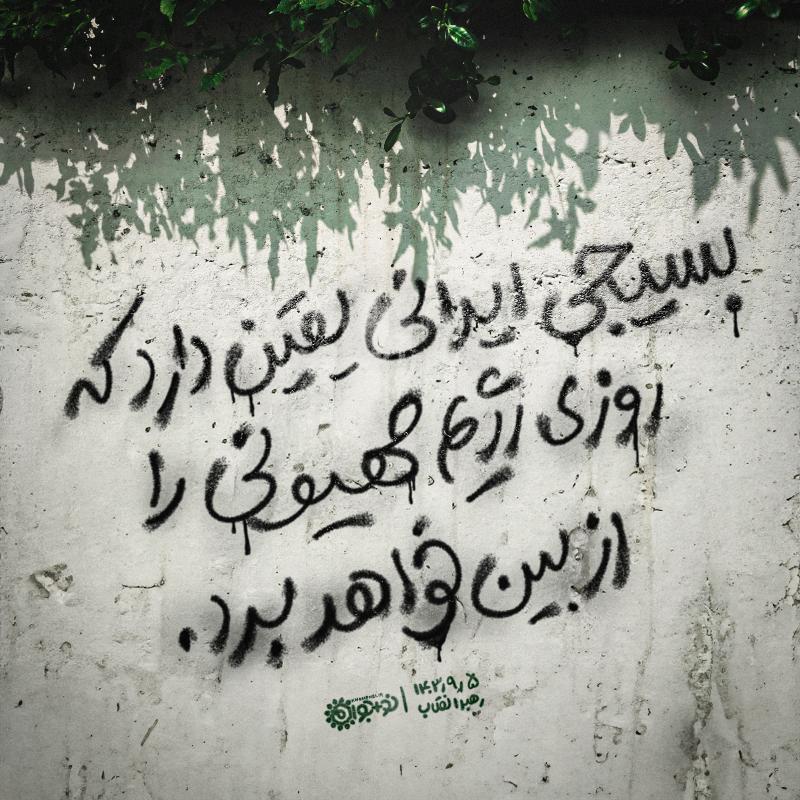 بسیجی ایرانی یقین دارد که
روزی رژیم صهیونی را
از بین خواهد برد.
۱۴۰۳٫۹٫۵
رهبر انقلاب
نوجوان
KHAMENEI.IR